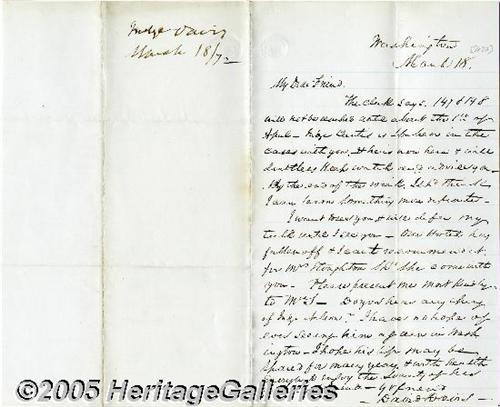 Judge Davis
March 18/72
Washington
March 18.
My Dear Friend.
The clerk says. 147 & 148
will not be reached until about the 1st of
April - Judge Curtis is in the
cases with you. & he is now here & will
doubtless keep watch and advise you -
By the end of the week. I sh'd think
I can learn something more definite -
I want to see you & will defer my
talk until I see you - Our Hotel has
fallen off & I can't recommend it
for Mrs Stoughton sh'd she come with
you - Please present me most kindly
to Mrs S - Do you hear any thing
of Judge Nelson? I have no hope of
ever seeing him again in Wash
ington - I hope his life may be
spared for many years, & with health
to enjoy the society of his
friend - Yr friend
David Davis -
©2005 HeritageGalleries